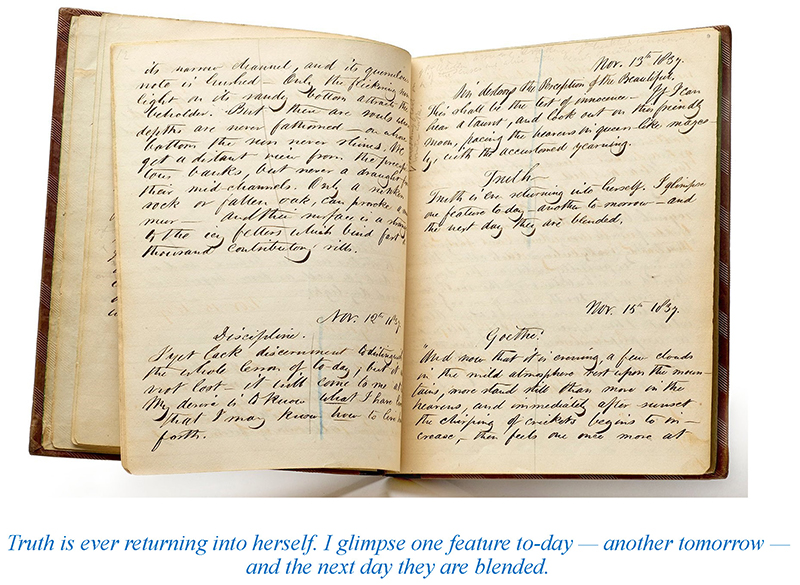 its narrow channel, and its querulous
note is hushed — Only the flickering
light on its sandy bottom attracts the
beholder. But there are souls whose
depths are never fathomed — on whose
bottom the sun never shines. We
get a distant view from the precipi
tous banks, but never a draught from
their mid-channels. Only a sunken
rock or fallen oak, can provoke a mur
mur — and their surface is a stranger
to the icy fetters which bind fast a
thousand contributory rills.
Nov. 12th 1837.
Discipline.
I yet lack discernment to distinguish
the whole lesson of to-day; but it is
not lost — it will come to me at
My desire is to know what I have lived,
that I may know how to live
forth.
Nov. 13th 1837.
Sin destroys the Perception of the Beautiful.
This shall be the test of innocence — If I can
hear a taunt, and look out on this friendly
moon, pacing the heavens in queen-like majes-
ty, with the accustomed yearning.
Truth
Truth is ever returning into herself. I glimpse
one feature to-day — another to-morrow — and
the next day they are blended.
Nov. 15th 1837.
Goethe.
"And now that it is evening, a few clouds
in the mild atmosphere rest upon the moun-
tains, more stand still than move in the
heavens, and immediately after sunset
the chirping of crickets begins to in-
crease, — then feels one once more at
Truth is ever returning into herself. I glimpse one feature to-day — another tomorrow —
and the next day they are blended.